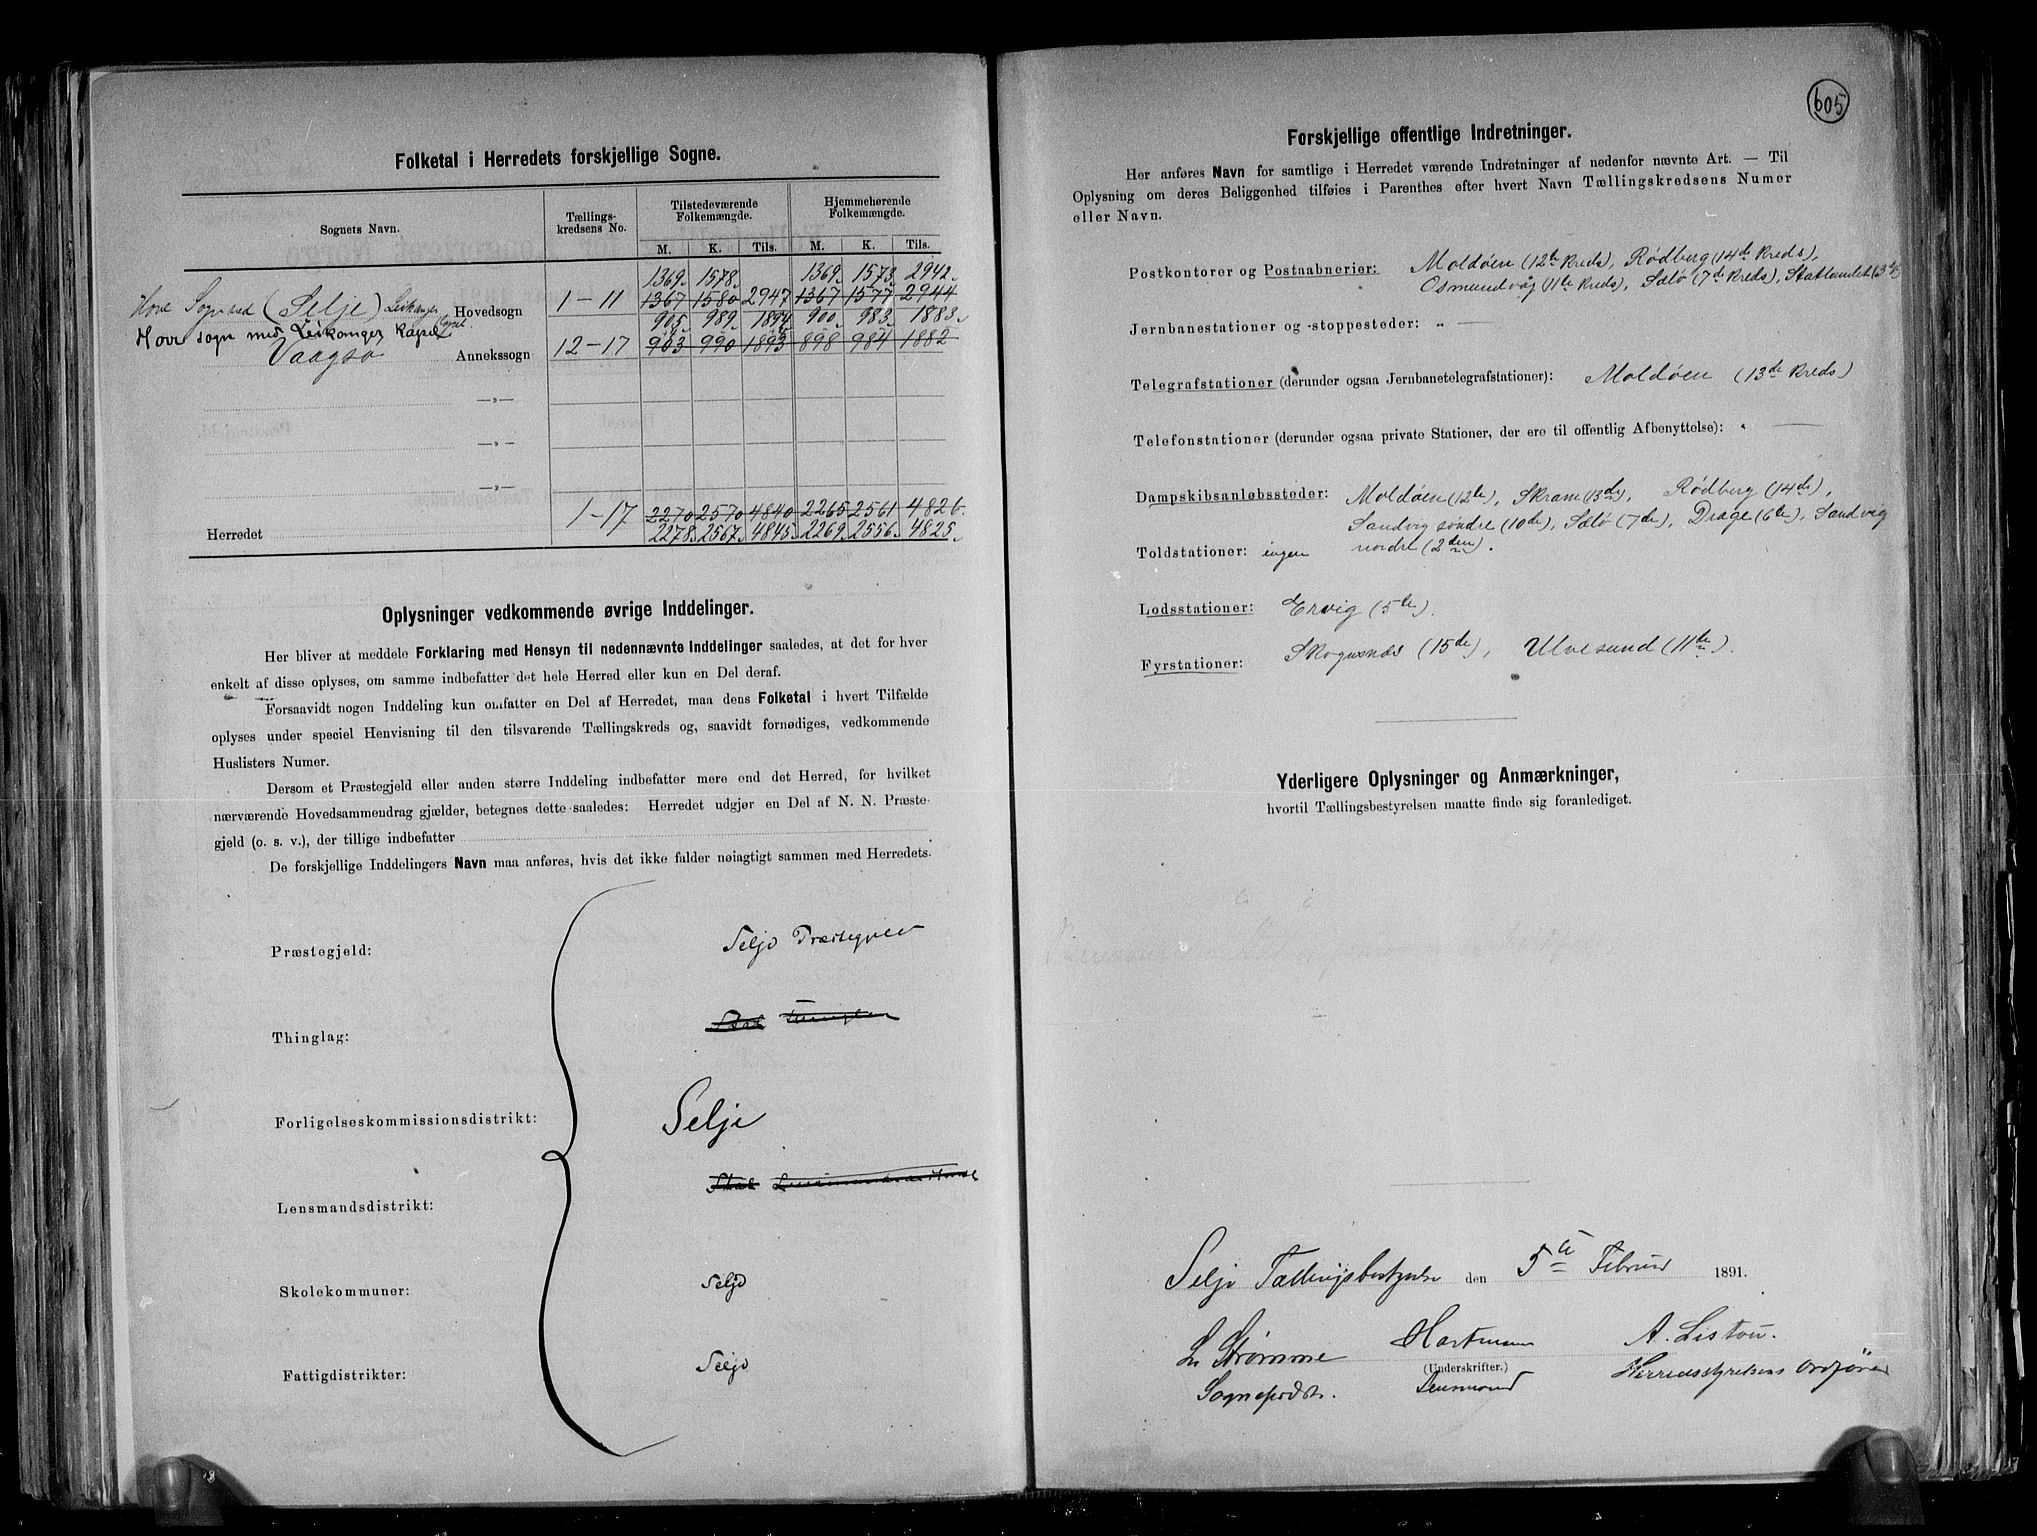 Folketal i Herredets forskjellige Sogne.
Sognets Navn.
Tællings-
kredsens No.
Tilstedeværende
Folkemængde.
Hjemmehørende
Folkemængde.
M. K. Tils. M. K. Tils.
1369. 1578. 1369. 1573. 2942.
Hove Sogn (Selje) Leikanger Hovedsogn 1-11 1367 1580 2947 1367 1577 2944
905. 989. 1894. 900. 983. 1883.
Hove sogn med Leikanger kapel
Vaagsø Annekssogn 12-17 903 990 1893 898 984 1882
—„—
—„—
—„—
1-17 2270 2570 4840 2265 2561 4826.
Herredet 2278. 2567. 4845. 2269. 2556. 4825.
Oplysninger vedkommende øvrige Inddelinger.
Her bliver at meddele Forklaring med Hensyn til nedennævnte Inddelinger saaledes, at det for hver
enkelt af disse oplyses, om samme indbefatter det hele Herred eller kun en Del deraf.
Forsaavidt nogen Inddeling kun omfatter en Del af Herredet, maa dens Folketal i hvert Tilfælde
oplyses under speciel Henvisning til den tilsvarende Tællingskreds og, saavidt fornødiges, vedkommende
Huslisters Numer.
Dersom et Præstegjeld eller anden større Inddeling indbefatter mere end det Herred, for hvilket
nærværende Hovedsammendrag gjælder, betegnes dette saaledes: Herredet udgjør en Del af N. N. Præste-
gjeld (o. s. v.), der tillige indbefatter
De forskjellige Inddelingers Navn maa anføres, hvis det ikke falder nøiagtigt sammen med Herredets.
Præstegjeld: Selje
Thinglag:
Forligelseskommissionsdistrikt: Selje
Lensmandsdistrikt:
Skolekommuner: Selje
Fattigdistrikter: Selje
605
Forskjellige offentlige Indretninger.
Her anføres Navn for samtlige i Herredet værende Indretninger af nedenfor nævnte Art. — Til
Oplysning om deres Beliggenhed tilføies i Parenthes efter hvert Navn Tællingskredsens Numer
eller Navn.
Postkontorer og Postaabnerier: Moldøen (12te Kreds), Rødberg (14de Kreds),
Osmundvåg (11te Kreds), Sælø (7de Kreds), Statlandet (3de)
Jernbanestationer og -stoppesteder: „ —
Telegrafstationer (derunder ogsaa Jernbanetelegrafstationer): Moldøen (13de Kreds)
Telefonstationer (derunder ogsaa private Stationer, der ere til offentlig Afbenyttelse): „ —
Dampskibsanløbssteder: Moldøen (12te), Skram (13de), Rødberg (14de),
Sandvig søndre (10de), Sælø (7de), Drage (6te), Sandvig
nordre (2den).
Toldstationer: ingen
Lodsstationer: Ervig (5te).
Fyrstationer: Skogsnæs (15de), Ulvesund (11te).
Yderligere Oplysninger og Anmærkninger,
hvortil Tællingsbestyrelsen maatte finde sig foranlediget.
Selje Tællingsbestyrelse den 5te Februar 1891.
Strømme Hartman A. Listou.
(Underskrifter.)
Sognepræst. Lensmand Herredsstyrelsens Ordfører